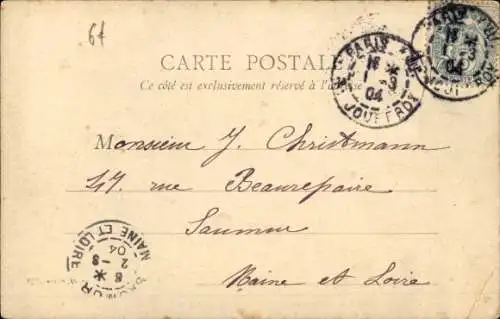 6f
CARTE POSTALE
Ce côté est exclusivement réservé à l'adresse
PARIS
18 *
1 - 3
04
JOUFFROY
PARIS
18 *
3
04
JOUFFROY
Monsieur J. Christmann
47 rue Beaurepaire
Saumur
Maine et Loire
SAUMUR
6 *
2 - 3
04
MAINE ET LOIRE